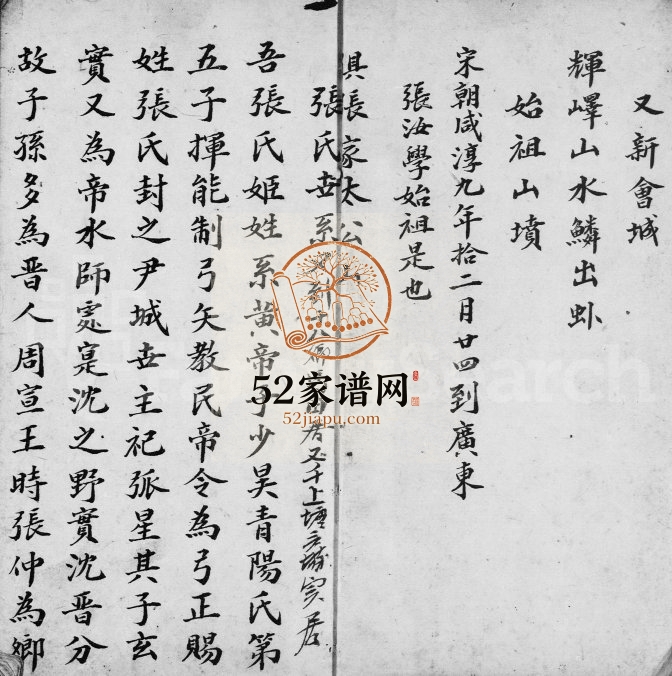 又新會城
輝嶧山水鱗出虬
始祖山墳
宋朝咸淳九年拾二月廿四到廣東
張汝學始祖是也
俱長家太公
張氏世系 居又千上塘 実居
吾張氏姬姓系黃帝子少昊青陽氏第
五子揮能制弓矢教民帝令為弓正賜
姓張氏封之尹城世主祀弧星其子玄
實又為帝水師處寔沈之野實沈晋分
故子孫多為晋人周宣王時張仲為鄉
52家谱网
52jiapu.com